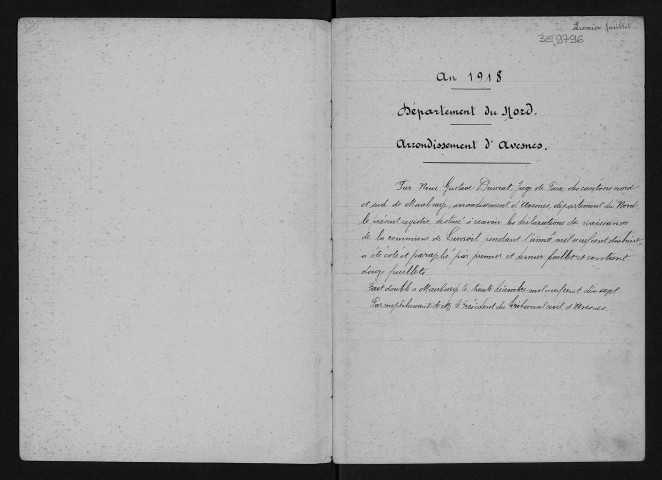 Premier feuillet
3E 9796
An 1918
Département du Nord.
Arrondissement d'Avesnes.
Par Nous Gustave Juge de Paix des cantons nord
et sud de Maubeuge, arrondissement d'Avesnes, département du Nord
le présent registre destiné à recevoir les déclarations de naissances
de la commune de pendant l'année mil neuf cent dix huit
a été coté et paraphé par premier et dernier feuillets contient
douze feuillets.
Fait double à Maubeuge le trente décembre mil neuf cent dix sept
Par empêchement de M. le Président du Tribunal civil d'Avesnes.